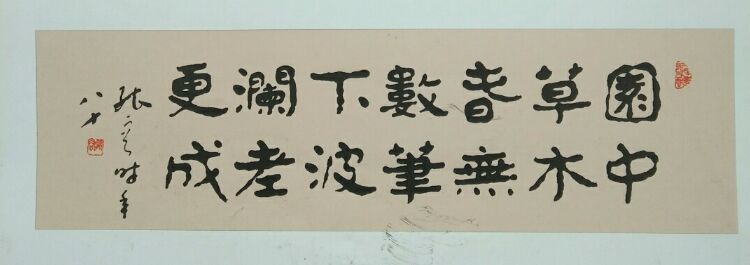 園中
草木
春無
數筆
下波
瀾老
更成
時年
八十